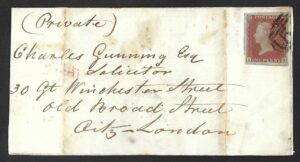 (Private)
Charles Gunning Esq
Solicitor
30 Gt Winchester Street
Old Broad Street
City London
POSTAGE
ONE PENNY